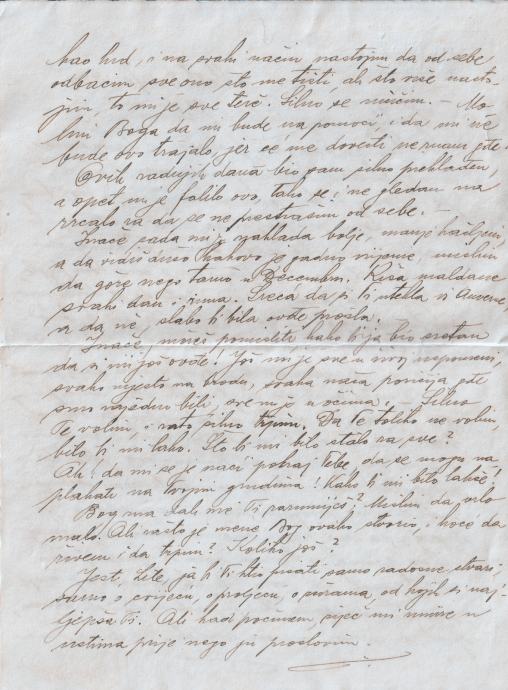 kao lud, i na svaki način nastojim da od sebe
odbacim sve ono što me tišti, ali što više nasto-
jim, to mi je sve teže. Silno se mučim. – Mo-
lim Boga da mi bude na pomoći, i da mi ne
bude ovo trajalo, jer će me dovesti ne znam gde.
Ovih zadnjih dana bio sam silno prehlađen,
a opet mi je falilo ovo, tako se i ne gledam na
zrcalo za da se ne prestrašim od sebe. –
Inače sada mi je nahlada bolje, manje kašljem,
a da vidiš samo kakovo je gadno vrijeme, mislim
da gore nego tamo u Decembru. Kiša
svaki dan i zima. Sreća da si ti utekla iz
ra da ne, slabo bi bila ovde prošla.
Inače, možeš pomisliti kako bi ja bio sretan
da si mi još ovdje! Još mi je sve u mojoj uspomeni,
svako mjesto na brodu, svaka naša poneštra, gde
smo zajedno bili, sve mi je u očima. – Silno
Te volim, i zato silno trpim. Da Te toliko ne volim,
bilo bi mi lako. Što bi mi bilo stalo za sve?
Ah! da mi se je naći pokraj Tebe, da se mogu na-
plakati na Tvojim grudima! Kako bi mi bilo lakše!
Bog zna dali me Ti razumiješ? Mislim da vrlo
malo. Ali zašto je mene Bog ovako stvorio, i hoće da
živem i da trpim? Koliko još?
Jest, Lile, ja bi Ti htio pisati samo radosne stvari,
samo o cvijeću, o proljeću, o zorama, od kojih si naj-
ljepša Ti. Ali kad počmem, riječ mi umire u
ustima prije nego ju proslovim.